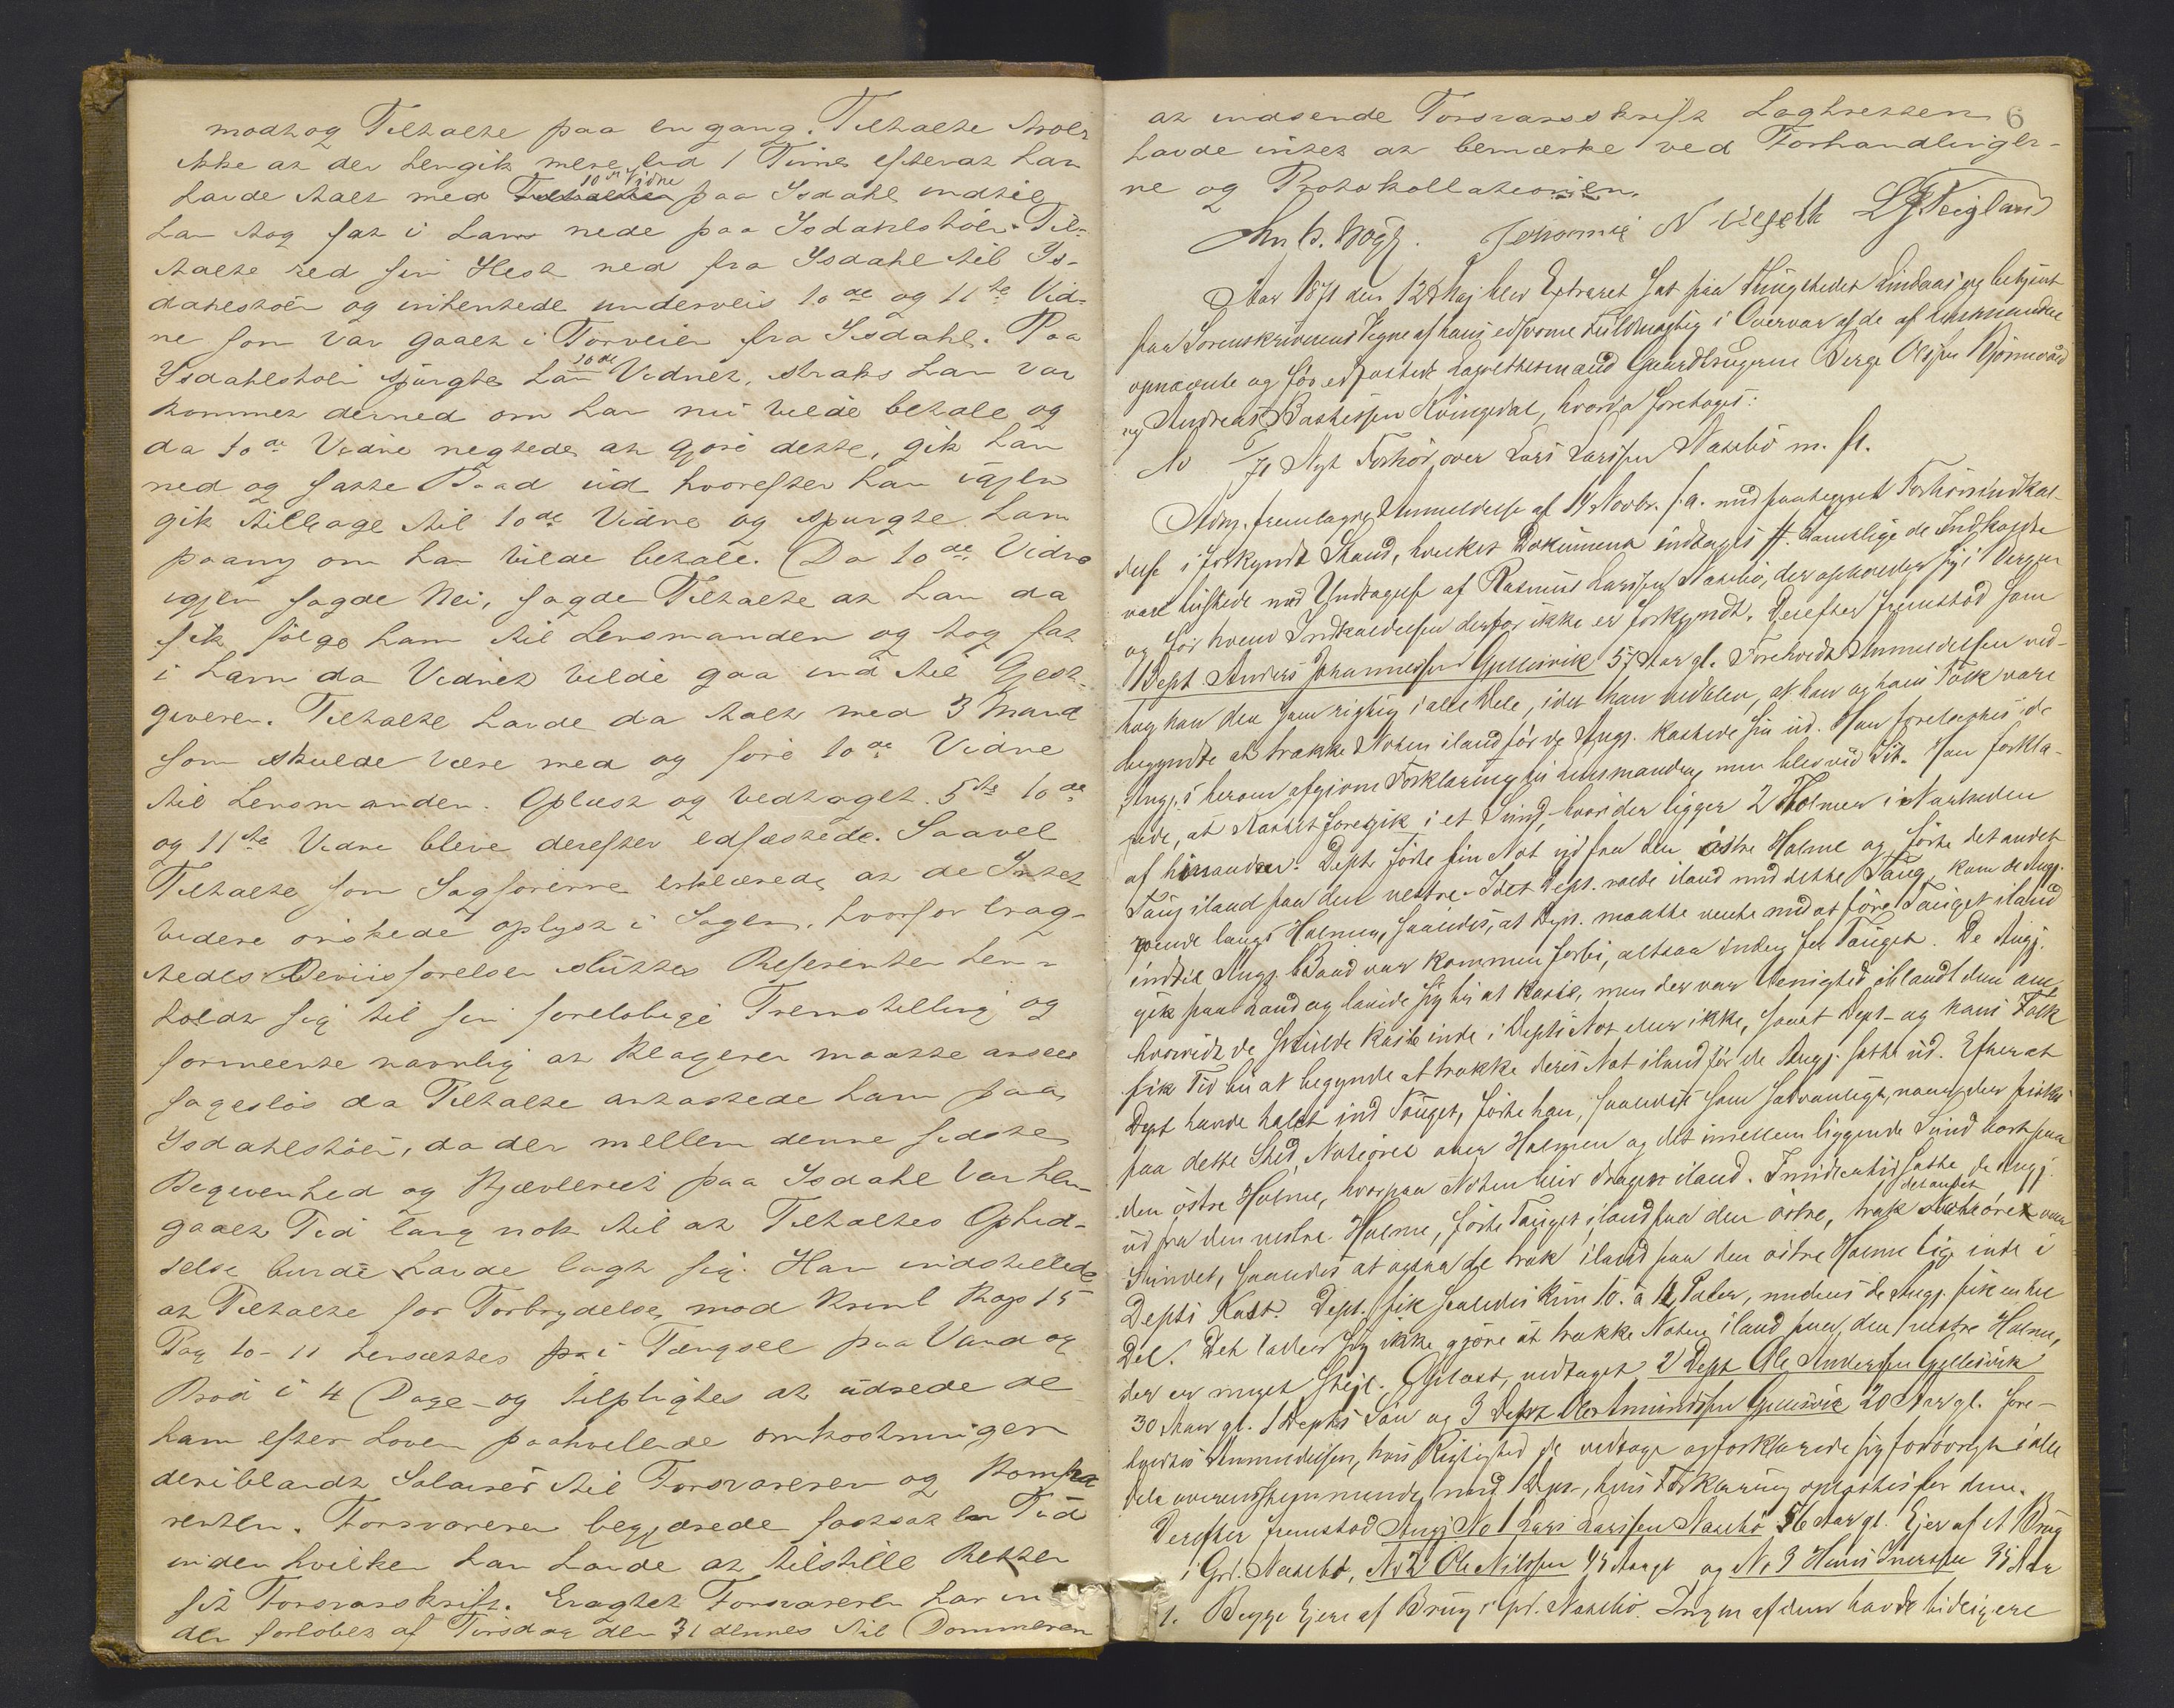 modtog Tiltalte paa en gang. Tiltalte troer
ikke at der hengik mere end 1 Time efterat han
havde talt med 10de Vidne paa Isdahl indtil
han tog fat i ham nede paa Isdahlstöen. Til-
talte red sin Hest ned fra Isdahl til Is-
dahlstöen og indhentede underveis 10de og 11te Vid-
ne som var gaaet i Forveien fra Isdahl. Paa
Isdahlstöen spurgte han 10de Vidnet, straks han var
kommet derned om han nu vilde betale og
da 10de Vidne negtede at gjøre dette, gik han
ned og satte Baad ud hvorefter han igjen
gik tilbage til 10de Vidne og spurgte ham
paany om han vilde betale. Da 10de Vidne
igjen sagde Nei, sagde Tiltalte at han da
fik følge ham til Lensmanden og tog fat
i ham da Vidnet vilde gaa ind til Gjest-
giveren. Tiltalte havde da talt med 3 Mand
som skulde være med og føre 10de Vidne
til Lensmanden. Oplæst og vedtaget. 5te 10de
og 11te Vidne bleve derefter edfæstede. Saavel
Tiltalte som Sagförerne erklærede at de Intet
videre önskede oplyst i Sagen, hvorfor
Beviisförelsen sluttes Referenten hen-
holdt sig til sin foreløbige Fremstilling og
formeente navnlig at Klageren maatte ansees
sageslös da Tiltalte antastede ham paa
Isdahlstöen, da der mellem denne sidste
Begivenhed og Kjævleriet paa Isdahl var hen-
gaaet Tid lang nok til at Tiltaltes Ophid-
selse burde have lagt sig. Han indstillede
at Tiltalte for Forbrydelse mod Kriml Kap 15
Pag 10-11 hensættes i Fængsel paa Vand og
Bröd i 4 Dage og tilpligtes at udrede de
ham efter Loven paahvilende omkostninger
deriblandt Salairer til Forsvareren og
renten. Forsvareren begjærede fastsat en Tid
inden hvilken han havde at tilstille Retten
sit Forsvarsskrift. Eragtet Forsvareren har in
den forløbet af Tirsdag den 31 dennes til Dommeren
6
at indsende Forsvarsskrift Lagretten
havde intet at bemærke ved Forhandlinger-
ne og Protokollationen.
Johannes N LJTeigland
Aar 1871 den 12 Maj blev Extraret sat paa Thingstedet Lindaas og betjent
paa Sorenskriverens Vegne af hans edsvorne Fuldmægtig i Overvær af de af Lensmanden
opnævnte og før edfæstede Lagrettesmænd Gaardbrugerne Berge Olsen
og Andreas Bastiesen Kvingedal, hvorda foretages:
No 71 Nyt Forhör over Lars Larssen Naxebö m. fl.
Adm. fremlagde Anmeldelse af 14 Novbr. f.a. med paategnet Forhörsindkal-
delse i forkyndt Stand, hvilket Dokument indtages #. Samtlige de Indkaldte
vare mødte med Undtagelse af Rasmus Larssen Naxebö, der opholder sig i Bergen
og for hvem Indkaldelsen derfor ikke er forkyndt. Derefter fremstod som
1 Dept Anders Johannessen Gjellesvik 57 Aar gl. Foreholdt Anmeldelsen ved-
tog han den som rigtig i alle Dele, idet han vedblev, at han og hans Folk vare
begyndte at trække Noten iland før de Angj. kastede sin ud. Han forelæstes de
Angj.s herom afgivne Forklaring til Lensmanden, men blev ved sit. Han forkla-
rede, at Kastet foregik i et Sund, hvor der ligger 2 Holmer i Nærheden
af hinanden. Dept førte sin Not ud fra den östre Holme og førte det andet
Taug iland paa den vestre. Idet Dept. roede iland med dette Taug, kom de Angj.
roende langs Holmen, saaledes, at Dept. maatte vente med at føre Tauget iland
indtil Angj. Baad var kommen forbi, altsaa indenfor Tauget. De Angj.
gik paa Land og lavede sig til at kaste, men der var Uenighed iblandt dem om,
hvorvidt de skulde kaste inde i Depts Not eller ikke, samt Dept. og hans Folk
fik Tid til at begynde at trække deres Not iland før de Angj. satte ud. Efterat
Dept havde halet ind Tauget, førte han, saaledes som sædvanligt, naar der fiskes
paa dette Sted, Notøret over Holmen og det imellem liggende Sund bort paa
den östre Holme, hvorpaa Noten blev dragen iland. Imidlertid satte de Angj.
ud fra den vestre Holme, førte Tauget iland paa den östre, trak det andet Notøre over
Sundet, saaledes at ogsaa de trak iland paa den östre Holme lige inde i
Depts Kast. Dept. fik saaledes kun 10 a 12 Tøler, medens de Angj. fik en hel
Del. Det lader sig ikke gjøre at trække Noten iland paa den vestre Holme,
der er meget steil. Oplæst, vedtaget 2 Dept Ole Andersen Gjellesvik
30 Aar gl. 1 Depts Sön og 3 Dept Ole Amundsen Gjellesvik 20 Aar gl. fore-
læstes Anmeldelsen, hvis Rigtighed de vedtage og forklarede sig forövrigt i alle
Dele overensstemmende med 1 Dept, hvis Forklaring oplæstes for dem.
Derefter fremstod Angj No 1 Lars Larssen Naxebö 56 Aar gl. Ejer af et Brug
i Grd. Naxebö, No 2 Ole Nilssen 45 Aar gl og No 3 Hans Iverssen 35 Aar
gl. Begge Ejere af Brug i Grd. Naxebö. Ingen af dem havde tidligere